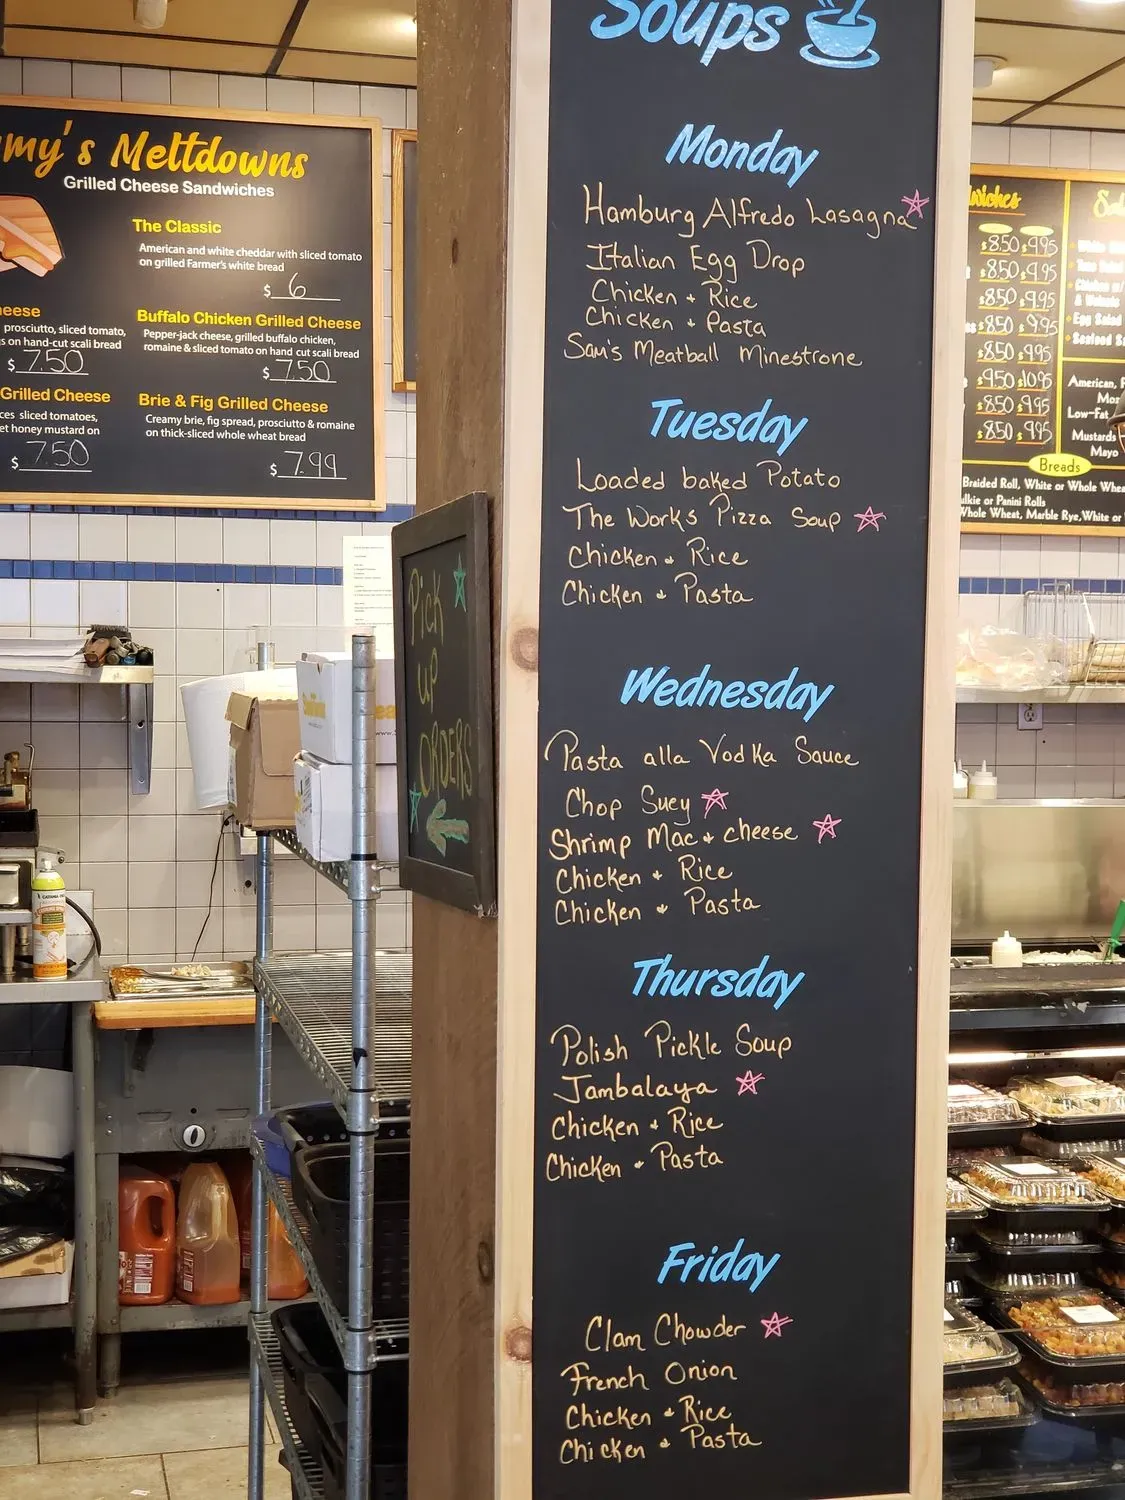 my's Meltdowns
Grilled Cheese Sandwiches
The Classic
American and white cheddar with sliced tomato
on grilled Farmer's white bread
$ 6
prosciutto, sliced tomato,
on hand-cut scali bread
$ 7.50
Buffalo Chicken Grilled Cheese
Pepper-jack cheese, grilled buffalo chicken,
romaine & sliced tomato on hand cut scali bread
$ 7.50
Grilled Cheese
sliced tomatoes,
honey mustard on
$ 7.50
Brie & Fig Grilled Cheese
Creamy brie, fig spread, prosciutto & romaine
on thick-sliced whole wheat bread
$ 7.99
Pick
up
ORDERS
Soups
Monday
Hamburg Alfredo Lasagna
Italian Egg Drop
Chicken + Rice
Chicken + Pasta
Sam's Meatball Minestrone
Tuesday
Loaded baked Potato
The Works Pizza Soup
Chicken + Rice
Chicken + Pasta
Wednesday
Pasta alla Vodka Sauce
Chop Suey
Shrimp Mac + cheese
Chicken + Rice
Chicken + Pasta
Thursday
Polish Pickle Soup
Jambalaya
Chicken + Rice
Chicken + Pasta
Friday
Clam Chowder
French Onion
Chicken + Rice
Chicken + Pasta
$8.50 $9.95
$8.50 $9.95
$8.50 $9.95
$8.50 $9.95
$8.50 $9.95
$9.50 $10.95
$8.50 $9.95
$8.50 $9.95
Egg Salad
American,
Low-Fat
Mustards
Mayo
Breads
Braided Roll, White or Whole
or Panini Rolls
Whole Wheat, Marble Rye, White or